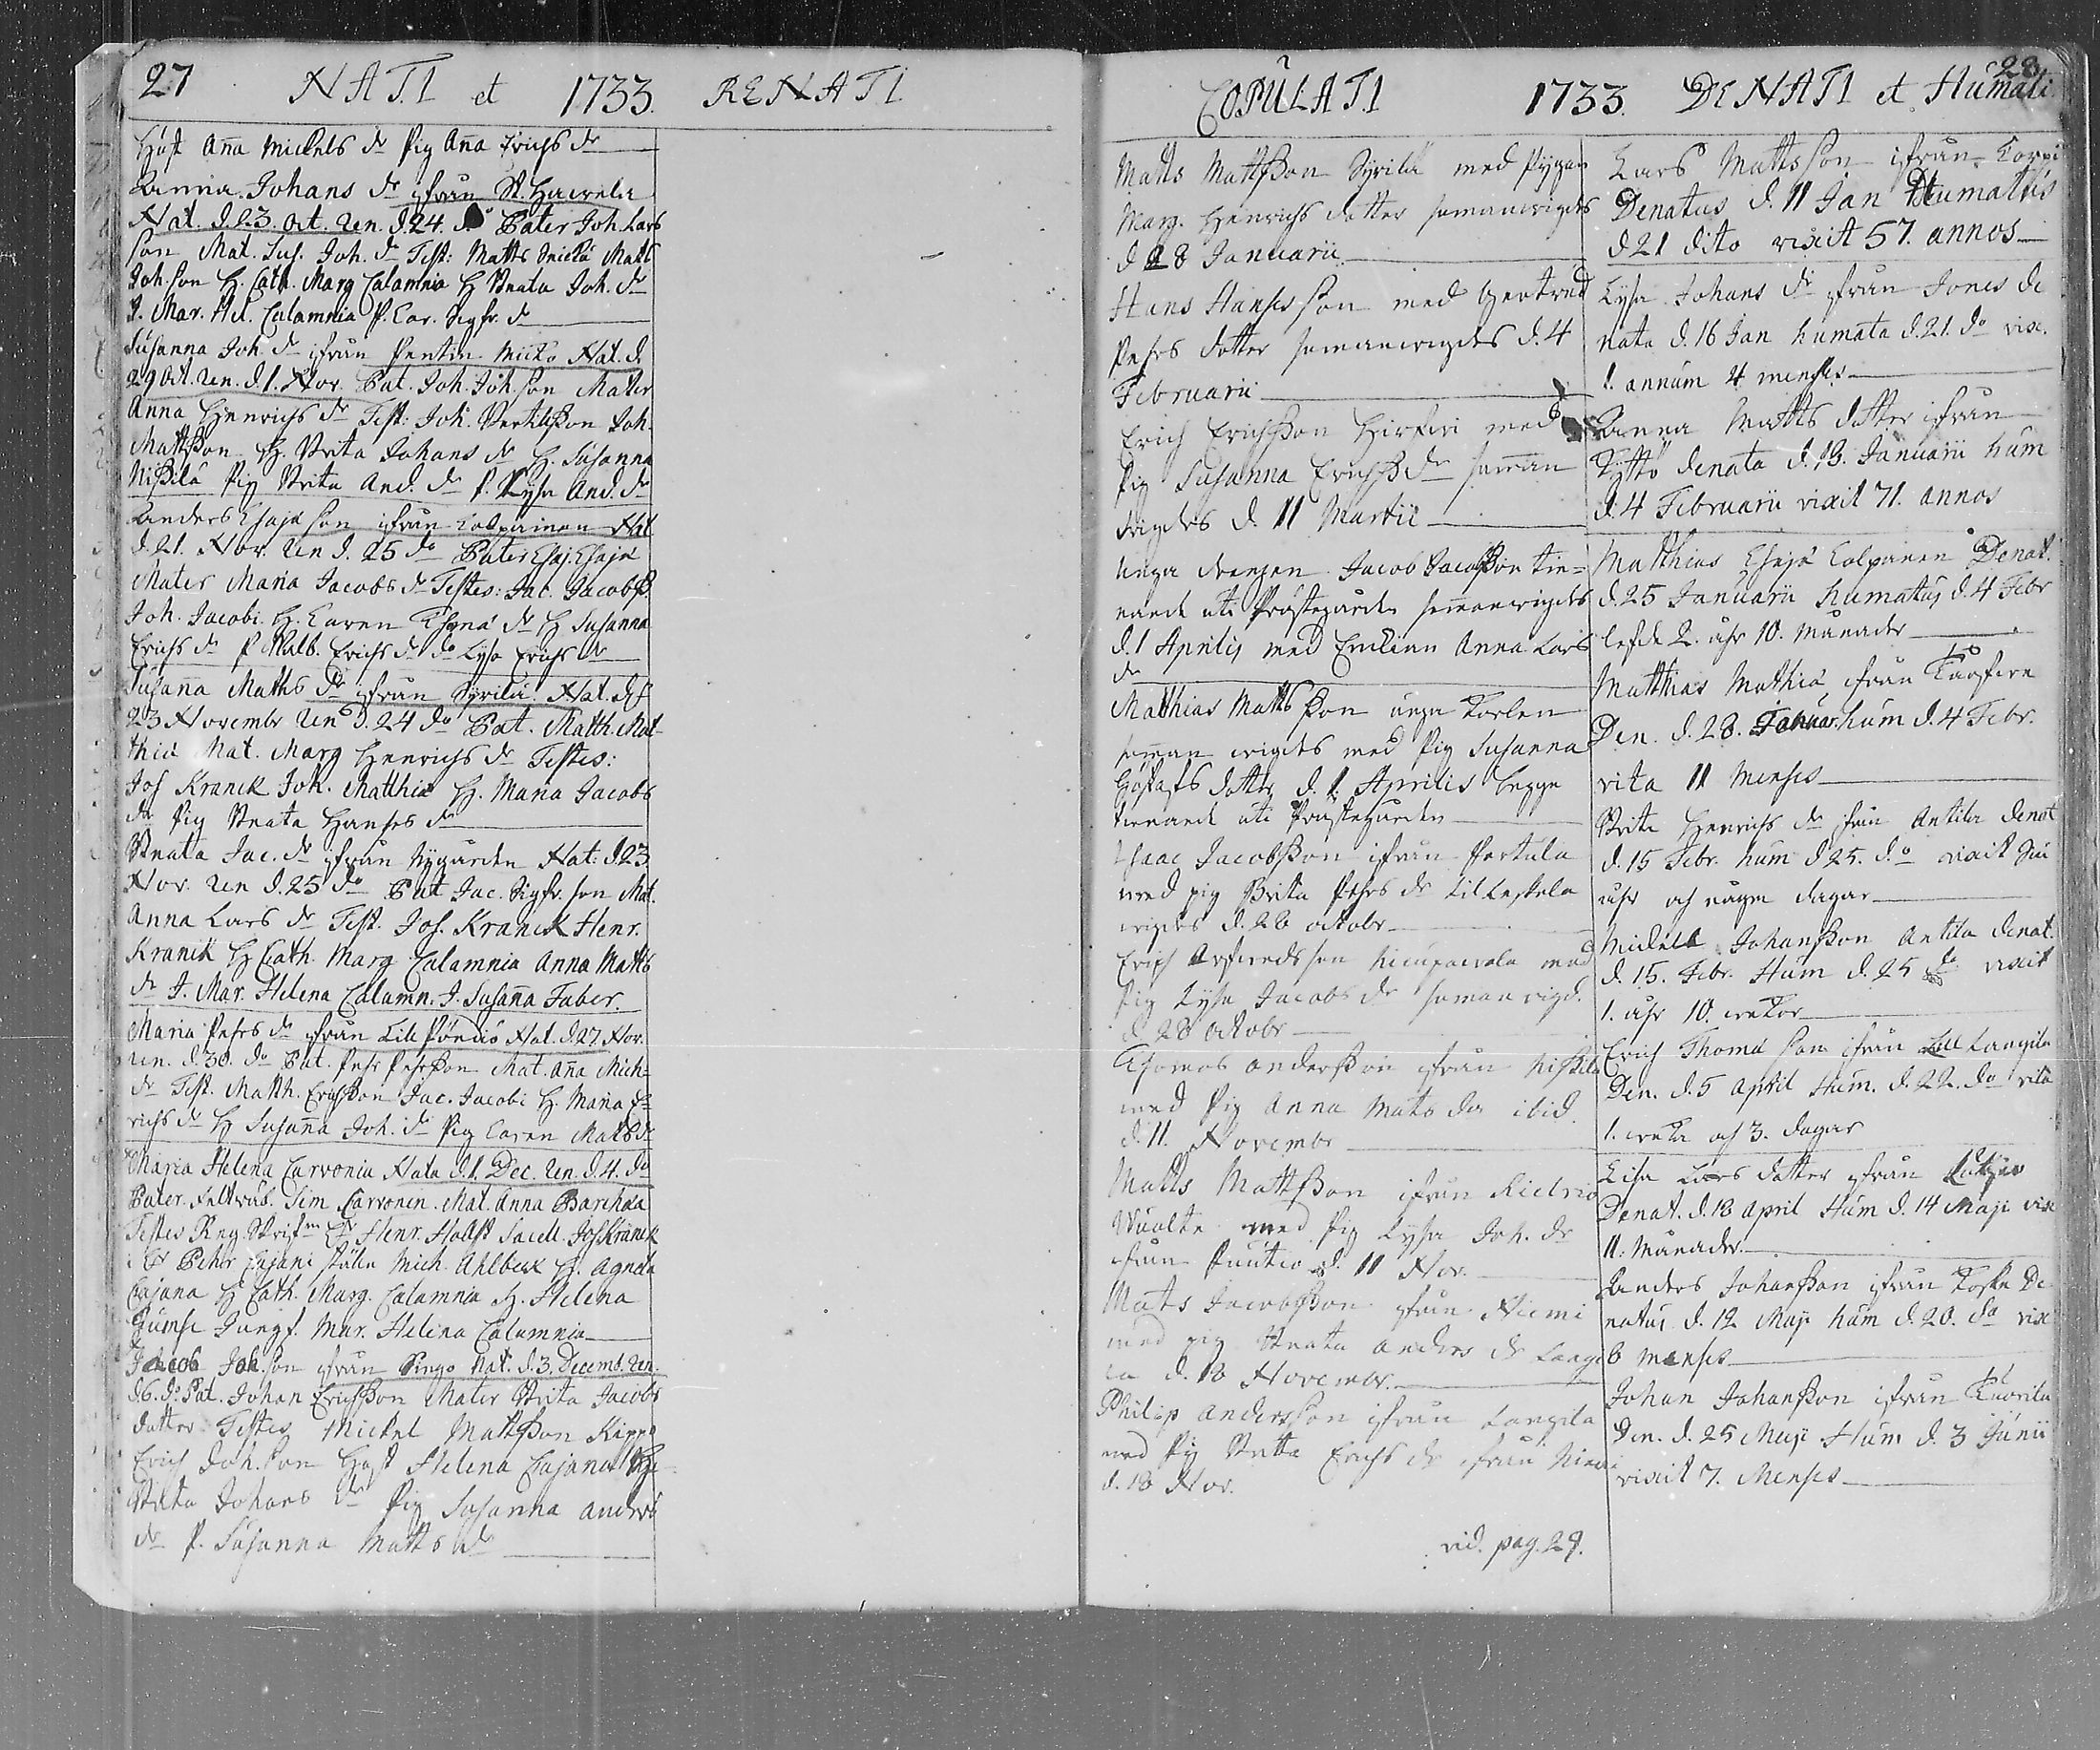 27 NATI et 1733. RENATI
Hust Anna Mickels dr Pig Anna Erichs dr
Anna Johans dr ifrån St. Hawela
Nat. d. 23. Oct. Ren. d. 24. do Pater Joh. Lars
son Mat. Sus. Joh. dr Test: Matts Matts
Joh. son H. Cath. Marg Calamnia H Beata Joh. dr
J. Mar. Hel. Calamnia P. Car. Sigfr. dr
Susanna Joh. dr ifrån Pentin Micko Nat. d.
29 Oct. Ren. d. 1. Nov. Pat. Joh. Joh. son Mater
Anna Henrichs dr Test: Joh. Bertilsson Joh.
Mattsson H. Brita Johans dr H. Susanna
Nissilä Pig Brita And. dr P. Lysa And. dr
Anders Esajæ son ifrån Calpainen Nat
d. 21. Nov. Ren d. 25 do Pater Esaj. Esajæ
Mater Maria Jacobs dr Testes: Jac. Jacobss.
Joh. Jacobi H. Caren dr H Susanna
Erichs dr P Walb. Erichs dr do Lysa Erichs dr
Susanna Matts dr ifrån Syrilä. Nat. d.
23 Novembr Ren d. 24 do Pat. Matth. Mat-
thiæ Mat. Marg Henrichs dr Testes:
Jos Kranck Joh. Matthiæ H. Maria Jacobs
dr Pig Beata Hanses dr
Beata Jac. dr ifrån Nygården Nat: d. 23
Nov. Ren d. 25 do Pat Jac. Sigfr. son Mat.
Anna Lars dr Test. Jos. Kranck Henr.
Kranck H Cath. Marg Calamnia Anna Matts
dr J. Mar. Helena Calamn. J. Susanna Faber.
Maria Pehrs dr ifrån Lill Pöndiö Nat. d. 27. Nov.
Ren. d. 30. do Pat. Pehr Pehrsson Mat. Anna Mich-
dr Test. Matth. Erichsson Jac. Jacobi H. Maria E-
richs dr H Susanna Joh. dr Pig Caren Mats dr
Maria Helena Carvonia Nata d. 1. Dec. Ren. d. 4. do
Pater. Sim. Carvonen. Mat. Anna Barchda
Testes Reg. Skrifm Hr Henr. Holst Sacell. Jos Kranck
Hr Pehr Cajani ställe Mich. Ahlbeck H. Agneta
Cajana H Cath. Marg. Calamnia H. Helena
Gumse Jungf. Mar. Helena Calamnia
Jacob Joh. son ifrån Singo Nat. d. 3. Decemb. Ren.
d. 6. do Pat. Johan Erichsson Mater Brita Jacobs
dotter Testes Mickel Mattsson Kippo
Erich Joh. son Hust Helena Cajana H
Brita Johans dr Pig Susanna Anders
dr P. Susanna Matts dr
COPULATI 1733.
Matts Mattsson Syrilä med Pygan
Marg. Henrichs dotter samanwigdes
d 28 Januarii
Hans Hansesson med Gertrud
Pehrs dotter samanwigdes d. 4
Februarii
Erich Erichsson Hirsiri med
Pig Susanna Erichs dr samman
wigdes d. 11 Martii
unga drengen Jacob Jacobsson tie-
nande uti Prästegården samanwigdes
d. 1 Aprilis med Enckian Anna Lars
dr
Matthias Mattsson unga Karlen
samman wigdes med Pig Susanna
Gustafs dotter d. 1. Aprilis begge
tienande uti Prästegården
Isaac Jacobsson ifrån Pertula
med pig Brita Pehrs dr Lill Leskela
wigdes d. 28 octobr
Erich Arfwedsson med
Pig Lysa Jacobs dr samanwigd.
d. 28 Octobr
Thomas Andersson ifrån Nissilä
med Pig Anna Mats dr ibid.
d. 11. Novembr
Matts Mattsson ifrån
med Pig Lysa Joh. dr
ifrån Puutio d. 11 Nov.
Mats Jacobsson ifrån Niemi
med pig Beata Anders dr Langi
la d. 18 Novembr.
Philip Andersson ifrån Langila
med Pig Britta Erichs dr ifrån Niemi
d. 18 Nov.
vid. pag. 29.
28
DENATI et Humati
Lars Mattsson ifrån Korpi
Denatus d. 11 Jan Humatus
d 21 dito vixit 57. annos
Lysa Johans dr ifrån Jones de
nata d. 16 Jan humata d. 21. do vix.
1. annum 4 menses
Anna Matts dotter ifrån
Kyttö denata d. 13. Januarii hum
d. 4 Februarii vixit 71. annos
Matthias Esajæ Calpanen Denat.
d. 25 Januarii humatus d. 4 Febr
lefde 2. åhr 10. Månader
Matthias Mathiæ ifrån
Den. d. 28. Januar. hum d. 4 Febr.
vita 11 Menses
Brita Henrichs dr ifrån Antila denat
d. 15 Febr. hum d 25. do vixit
åhr och någre dagar
Mickell Johansson Antila denat.
d. 15. Febr. Hum d. 25 do vixit
1. åhr 10. wekor
Erich Thomæ son ifrån Lill Langila
Den. d. 5 April Hum. d. 22. do vita
1. weka och 3. dagar
Lisa Lars dotter ifrån
Denat. d. 18 April Hum d. 14 Maji vix
11. Månader.
Anders Johansson ifrån Koske De
natus d. 12 Maji hum d. 20. do vix
6 menses
Johan Johansson ifrån Kuorila
Den. d. 25 Maji Hum d. 3 Junii
vixit 7. Menses